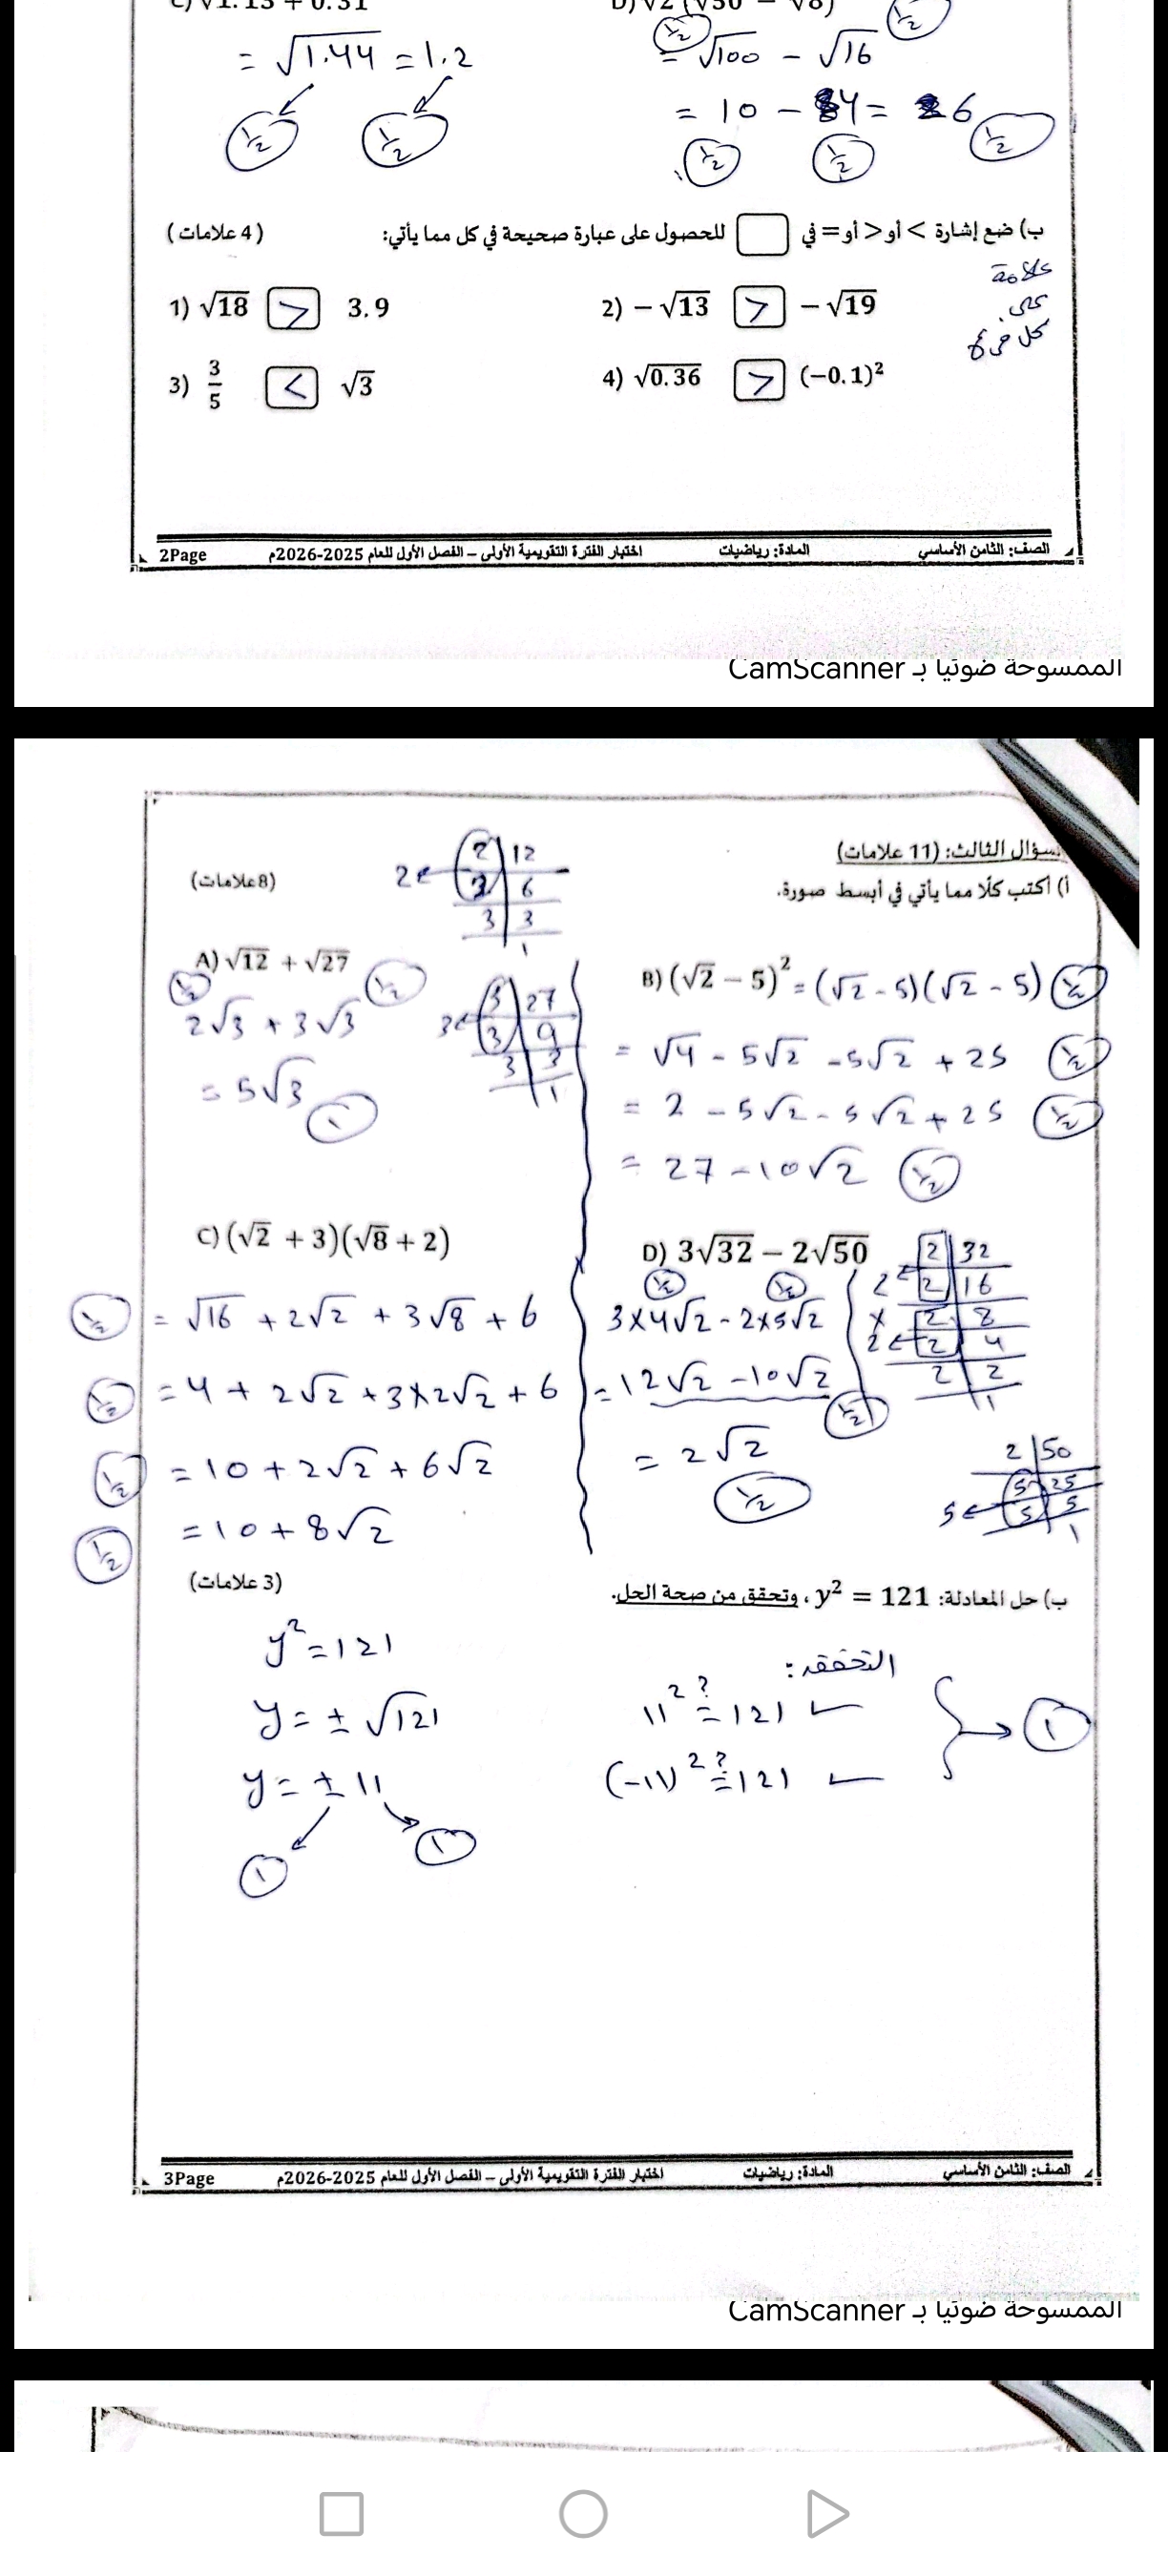 C) √1.13 + 0.31
D) √2 (√50 − √8)
= √1.44 = 1.2
= √100 − √16
= 10 − 4 = 6
½ ½ ½ ½ ½ ½ ½
ب) ضع إشارة > أو < أو = في □ للحصول على عبارة صحيحة في كل مما يأتي: (4 علامات)
علامة
على
كل فرع
1) √18 > 3.9
2) −√13 > −√19
3) 3/5 < √3
4) √0.36 > (−0.1)²
الصف: الثامن الأساسي المادة: رياضيات اختبار الفترة التقويمية الأولى – الفصل الأول للعام 2025-2026م 2Page
الممسوحة ضوئيا بـ CamScanner
السؤال الثالث: (11 علامات)
أ) اكتب كلًا مما يأتي في أبسط صورة. (8علامات)
2 | 12
2 ← 2 | 6
3 | 3
1
A) √12 + √27
½ ½
2√3 + 3√3
= 5√3 ①
3 | 27
3 ← 3 | 9
3 | 3
1
B) (√2 − 5)² = (√2 − 5)(√2 − 5) ½
= √4 − 5√2 − 5√2 + 25 ½
= 2 − 5√2 − 5√2 + 25 ½
= 27 − 10√2 ½
C) (√2 + 3)(√8 + 2)
½ = √16 + 2√2 + 3√8 + 6
½ = 4 + 2√2 + 3×2√2 + 6
½ = 10 + 2√2 + 6√2
½ = 10 + 8√2
D) 3√32 − 2√50
½ ½
3×4√2 − 2×5√2
= 12√2 − 10√2 ½
= 2√2
½
2 | 32
2 ← 2 | 16
× 2 | 8
2 ← 2 | 4
2 | 2
1
2 | 50
5 | 25
5 ← 5 | 5
1
ب) حل المعادلة: y² = 121 ، وتحقق من صحة الحل. (3 علامات)
y² = 121
y = ± √121
y = ± 11
① ①
التحقق:
11² ≟ 121 ✓
(−11)² ≟ 121 ✓
} → ①
الصف: الثامن الأساسي المادة: رياضيات اختبار الفترة التقويمية الأولى – الفصل الأول للعام 2025-2026م 3Page
الممسوحة ضوئيا بـ CamScanner